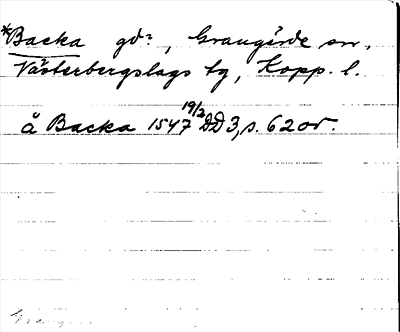 *Backa gd?, Grangärde sn,
Västerbergslags tg, Kopp. l.
å Backa 1547 19/2 DD 3, s. 62 or.